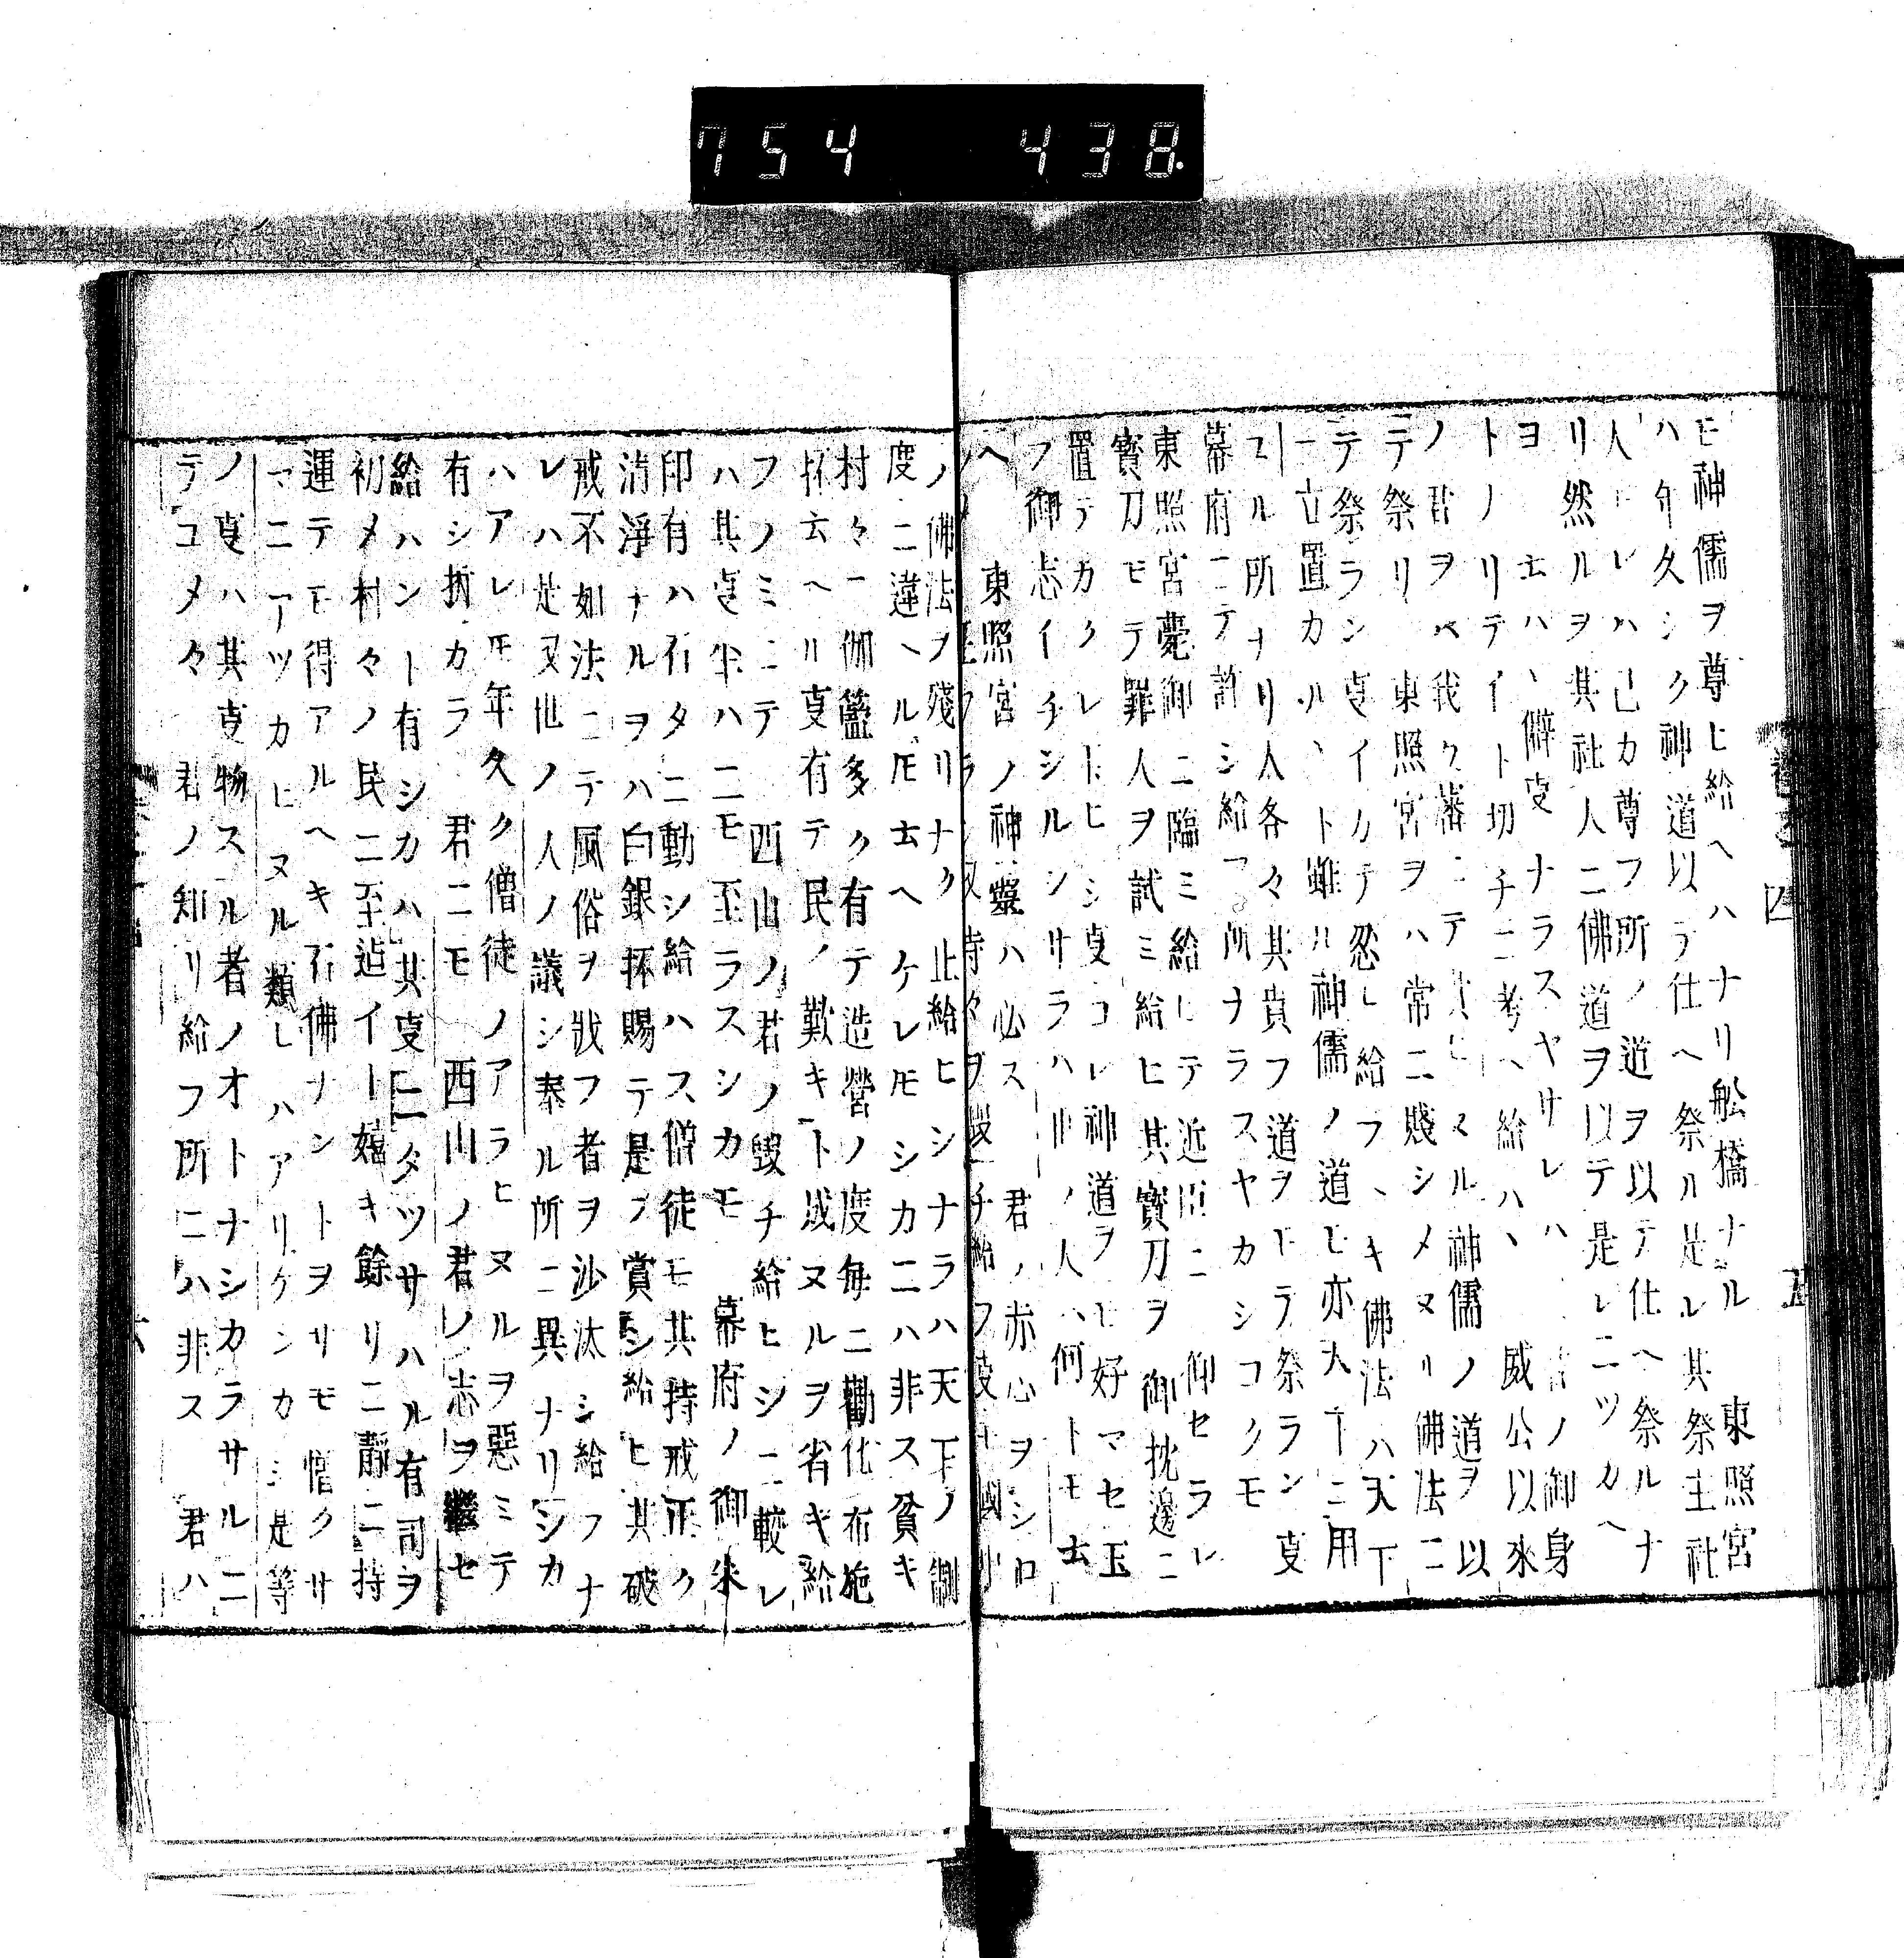 754 438.
四
五
モ神儒ヲ尊ヒ給ヘハナリ舩橋ナル 東照宮
ハ年久シク神道以テ仕ヘ祭ル是レ其祭主社
人ナレハ己カ尊フ所ノ道ヲ以テ仕ヘ祭ルナ
リ然ルヲ其社人ニ佛道ヲ以テ是レニツカヘ
ヨト云ハヽ僻叓ナラスヤサレハ 君ノ御身
トノリテイト切チニ考ヘ給ハヽ 威公以來
ノ君ヲハ我ク藩ニテ貴ヒヌル神儒ノ道ヲ以
テ祭リ 東照宮ヲハ常ニ賤シメヌル佛法ニ
テ祭ラン叓イカテ忍ヒ給フヘキ佛法ハ天下
ニ立置カルヽト雖ル神儒ノ道モ亦天下ニ用
ユル所ナリ人各々其貴フ道ヲトラ祭ラン叓
幕府ニテ許シ給フ所ナラスヤカシコクモ
東照宮薨御ニ臨ミ給ヒテ近臣ニ仰セラレ
寳刀モテ罪人ヲ試ミ給ヒ其寳刀ヲ御枕邊ニ
置テカクレトヒシ叓コレ神道ヲモ好マセ玉
フ御志イチシルシサラハ 世ノ人ハ何トモ云
ヘ 東照宮ノ神靈ハ必ス 君ノ赤心ヲシロ
ノ佛法ヲ殘リナク止給ヒシナラハ天下ノ制
度ニ違ヘルㇳモ云ヘケレㇳモシカニハ非ス貧キ
村々ニ伽籃多ク有テ造營ノ度毎ニ勸化布施
抔云ヘル叓有テ民ノ歎キト成ヌルヲ省キ給
フノミニテ 西山ノ君ノ毀チ給ヒシニ較レ
ハ其叓半ハニモ至ラスシカモ 幕府ノ御朱
印有ハ石タニ動シ給ハス僧徒モ其持戒正ク
清淨ナルヲハ白銀抔賜テ是ヲ賞シ給ヒ其破
戒不如法ニテ風俗ヲ戕フ者ヲ沙汰シ給フナ
レハ是又世ノ人ノ議シ奉ル所ニ異ナリシカ
ハアレㇳモ年久ク僧徒ノアラヒヌルヲ惡ミテ
有シ折カラ 君ニモ 西山ノ君ノ志ヲ繼セ
給ハント有シカハ其叓ニタツサハル有司ヲ
初メ村々ノ民ニ至迠イト嬉キ餘リニ靜ニ持
運テモ得アルヘキ石佛ナントヲリモ憎クサ
マニアツカヒヌル類ヒハアリケンカシ是等
ノ叓ハ其叓物スル者ノオトナシカラサルニ
テユメ々 君ノ知リ給フ所ニハ非ス 君ハ
六